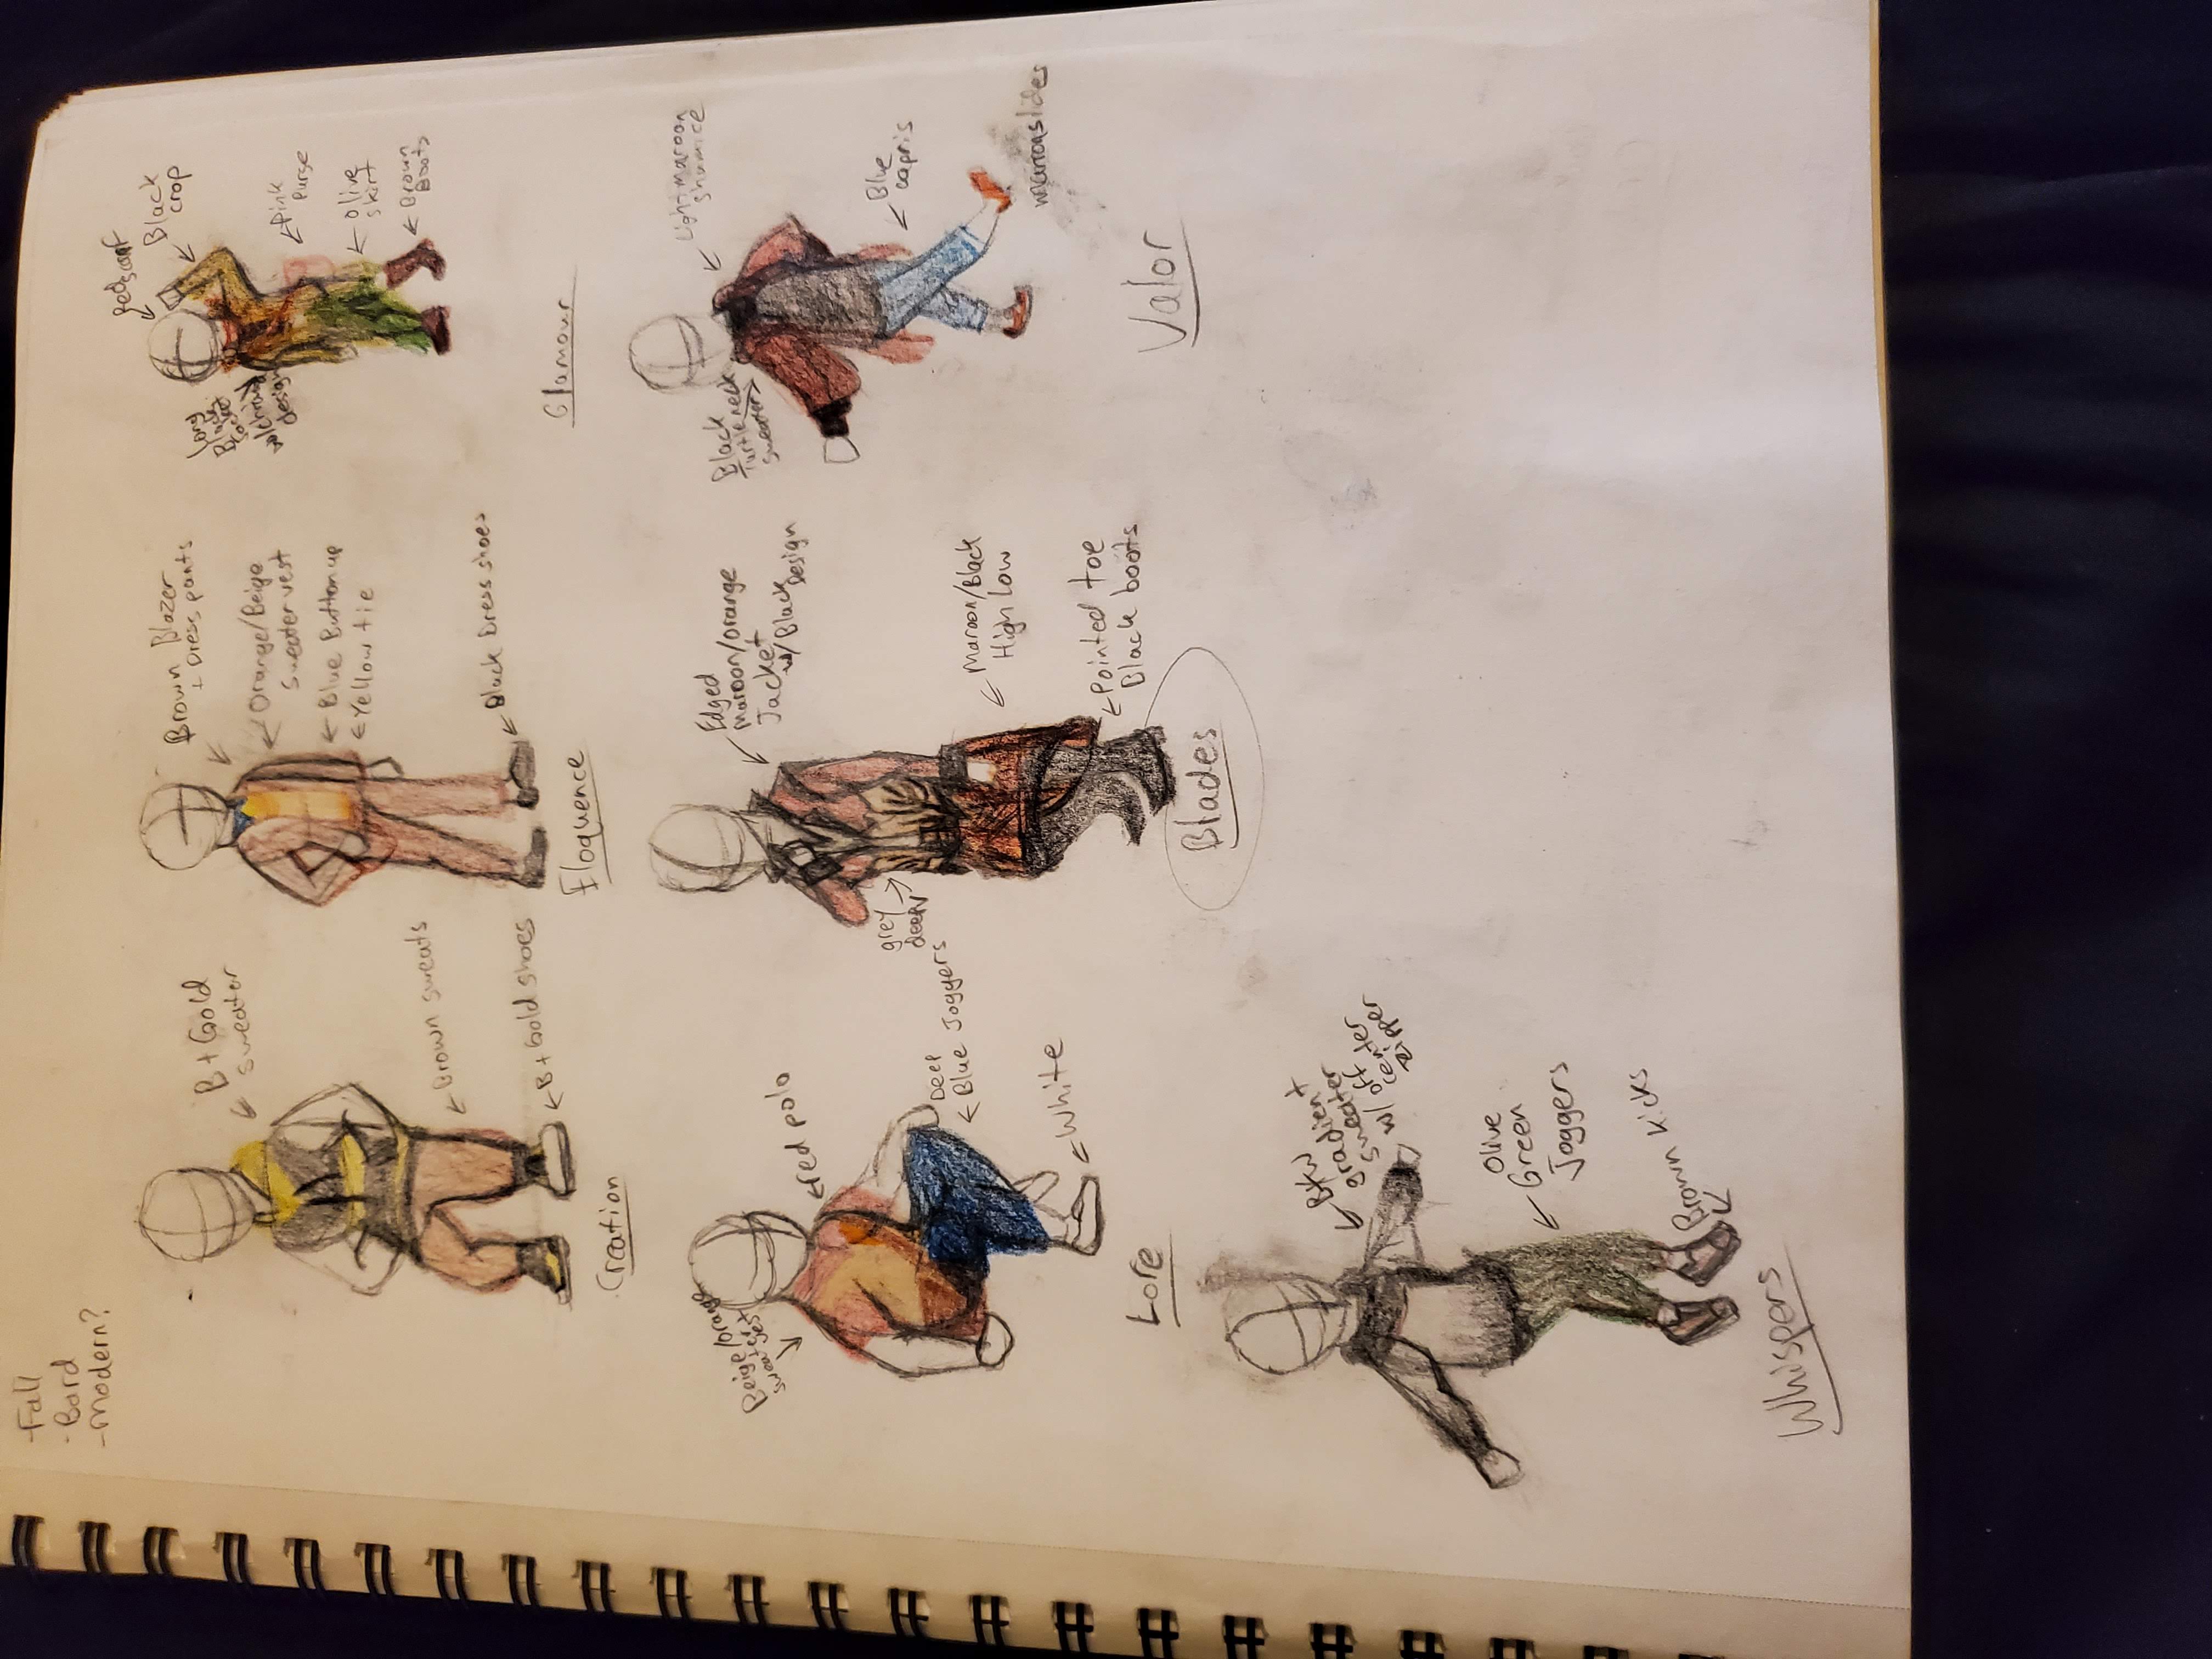 -Fall
-Bard
-Modern?
B + Gold
sweater
Brown sweats
B + Gold shoes
Creation
Brown Blazer
+ Dress pants
Orange/Beige
Sweater vest
Blue Button up
Yellow tie
Black Dress shoes
Eloquence
Red scarf
Black
crop
long
Black
Jacket
design
Pink
Purse
olive
skirt
Brown
Boots
Glamour
Beige/Orange
sweater
vest
red polo
Deep
Blue Joggers
White
Lore
Edged
Maroon/Orange
Jacket
w/ Black
Design
grey
deep V
Maroon/Black
High low
Pointed toe
Black boots
Blades
Light maroon
Black
Turtleneck
sweater
Blue
capris
Valor
B+W
gradient
sweater
w/ off
center
zipper
Olive
Green
Joggers
Brown kicks
Whispers